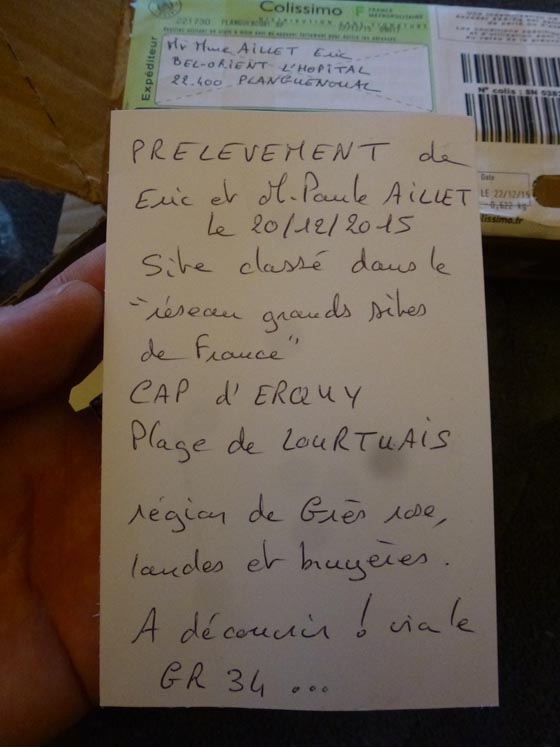 Colissimo
FRANCE
MÉTROPOLITAINE
Expéditeur
Mr Mme AILLET Eric
BEL-ORIENT L'HOPITAL
22.400 PLANGUENOUAL
N° colis : 8N
Date
LE 22/12/15
0,622 kg
PRELEVEMENT de
Eric et M-Paule AILLET
le 20/12/2015
Site classé dans le
"réseau grands sites
de France"
CAP d'ERQUY
Plage de LOURTUAIS
région de Grès rose,
landes et bruyères.
A découvrir ! via le
GR 34 ...